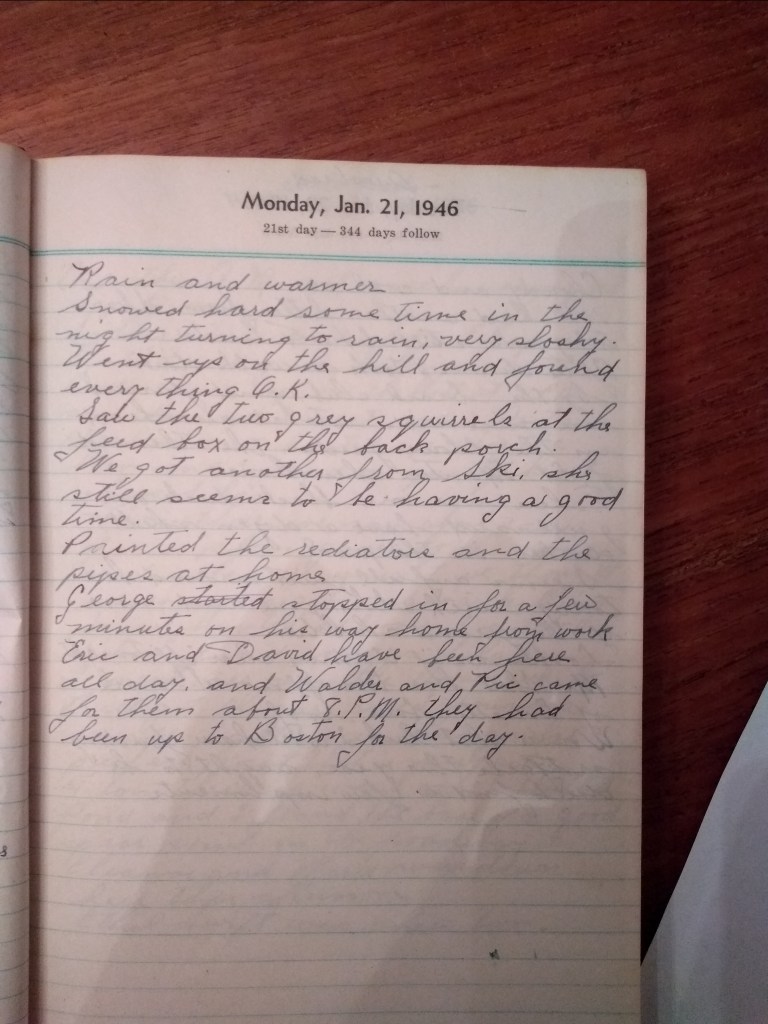 Monday, Jan. 21, 1946
21st day — 344 days follow
Rain and warmer
Snowed hard some time in the
night turning to rain, very sloshy.
Went up on the hill and found
every thing O.K.
Saw the two grey squirrels at the
feed box on the back porch.
We got another from Ski, she
still seems to be having a good
time.
Painted the rediators and the
pipes at home
George started stopped in for a few
minutes on his way home from work
Eric and David have been here
all day. and Walder and Pic came
for them about 8.P.M. they had
been up to Boston for the day.